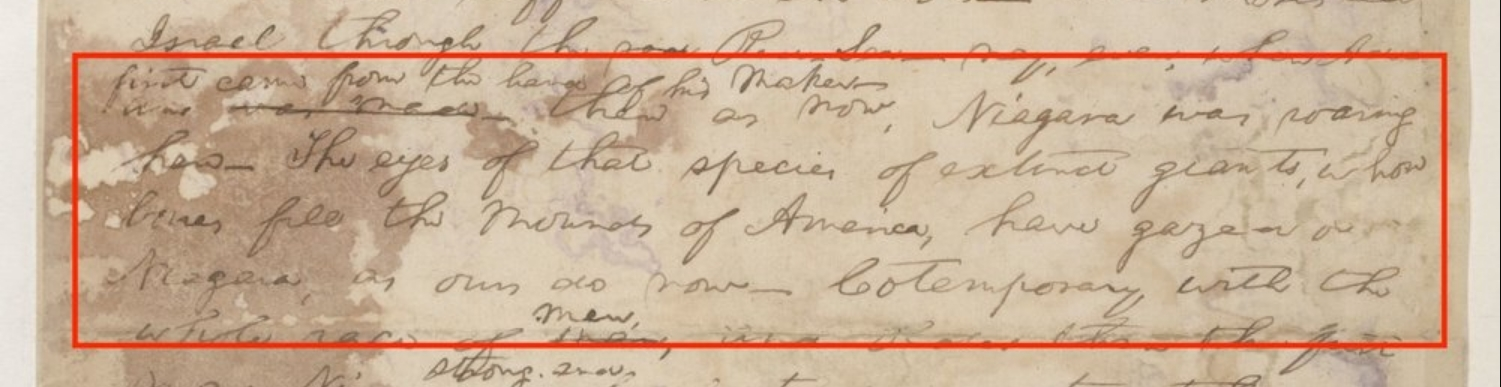 Israel through the Red Sea— nay, even, when Adam
first came from the hand of his Maker—
was made— then as now, Niagara was roaring
here— The eyes of that species of extinct giants, whose
bones fill the Mounds of America, have gazed on
Niagara, as ours do now— Cotemporary with the
men,
whole race of men, and older than the first
strong now